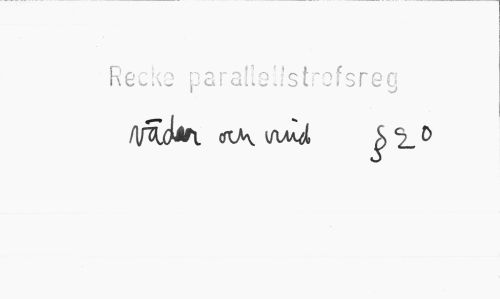 Recke parallellstrofsreg
väder och vind § 20